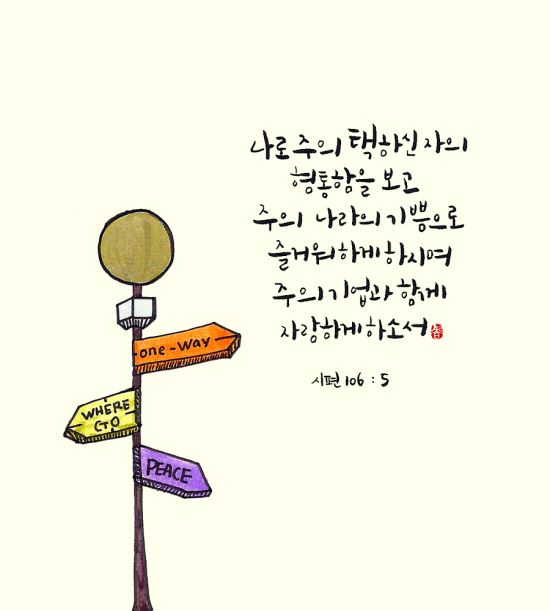 나로 주의 택하신 자의
형통함을 보고
주의 나라의 기쁨으로
즐거워하게 하시며
주의 기업과 함께
자랑하게 하소서
시편 106 : 5
one-way
WHERE
GO
PEACE